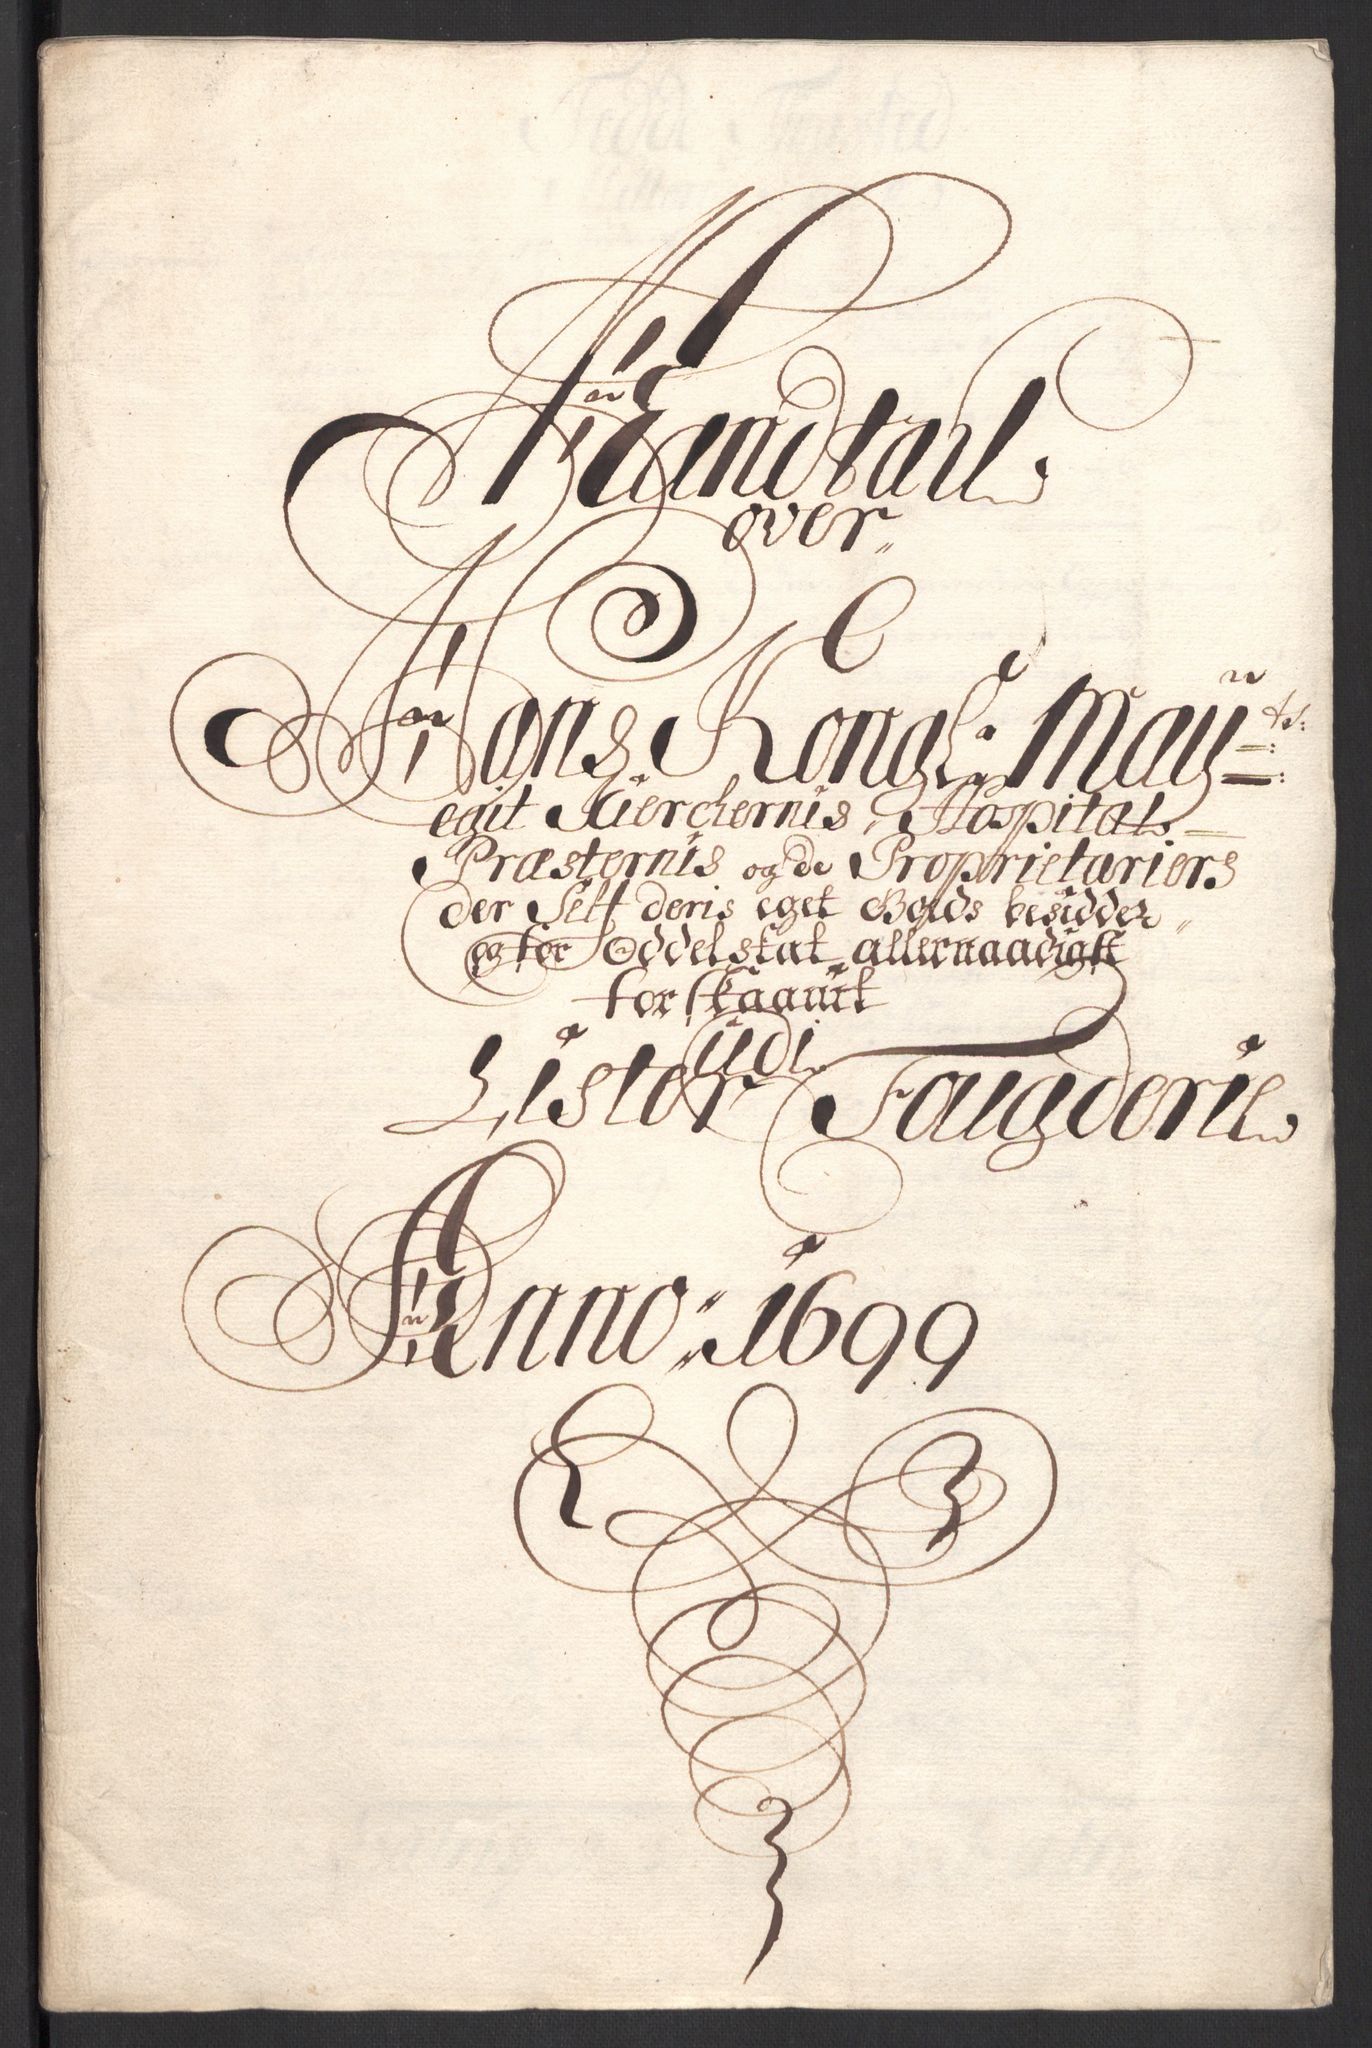 Mandtall
over
Hans Kongl: Mayts:
egit Kierchernis, Hospital
Præsternis og de Proprietariers
der Self deris eget Gods besidder
og for Oddelskat allernaadigst
forskaanit
udi
Lister Faugderie
Anno: 1699